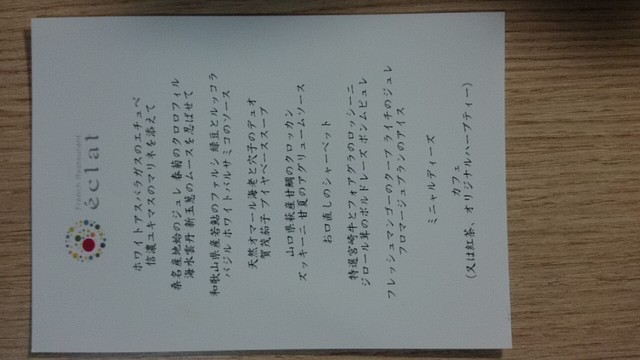 French Restaurant
éclat
ホワイトアスパラガスのエチュベ
信濃ユキマスのマリネを添えて
桑名産地蛤のジュレ 春菊のクロロフィル
海水雲丹 新玉葱のムースを忍ばせて
和歌山県産若鮎のファルシ 緑豆とルッコラ
バジル ホワイトバルサミコのソース
天然オマール海老と穴子のデュオ
賀茂茄子 ブイヤベーススープ
山口県萩産甘鯛のクロッカン
ズッキーニ 甘夏のアグリュームソース
お口直しのシャーベット
特選宮崎牛とフォアグラのロッシーニ
ジロール茸のボルドレーズ ポンムピュレ
フレッシュマンゴーのクープ ライチのジュレ
フロマージュブランのアイス
ミニャルディーズ
カフェ
(又は紅茶、オリジナルハーブティー)